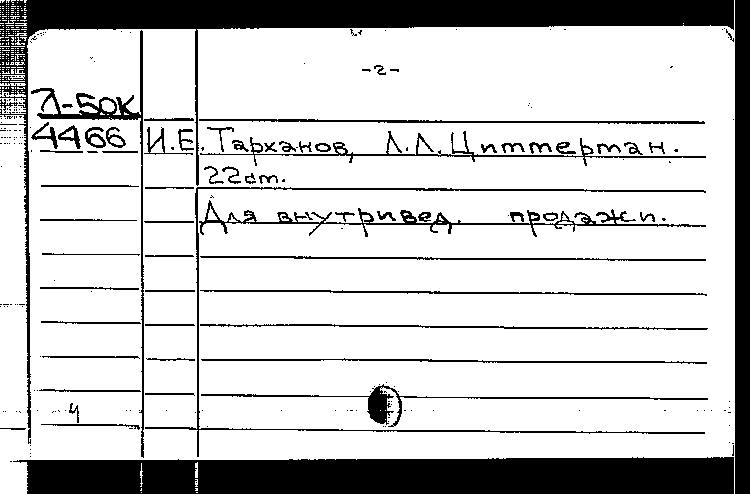 -2-
Л-50К
4466 И.Е. Тарханов, Л.Л. Циммерман.
22 cm.
Для внутривед. продажи.
4